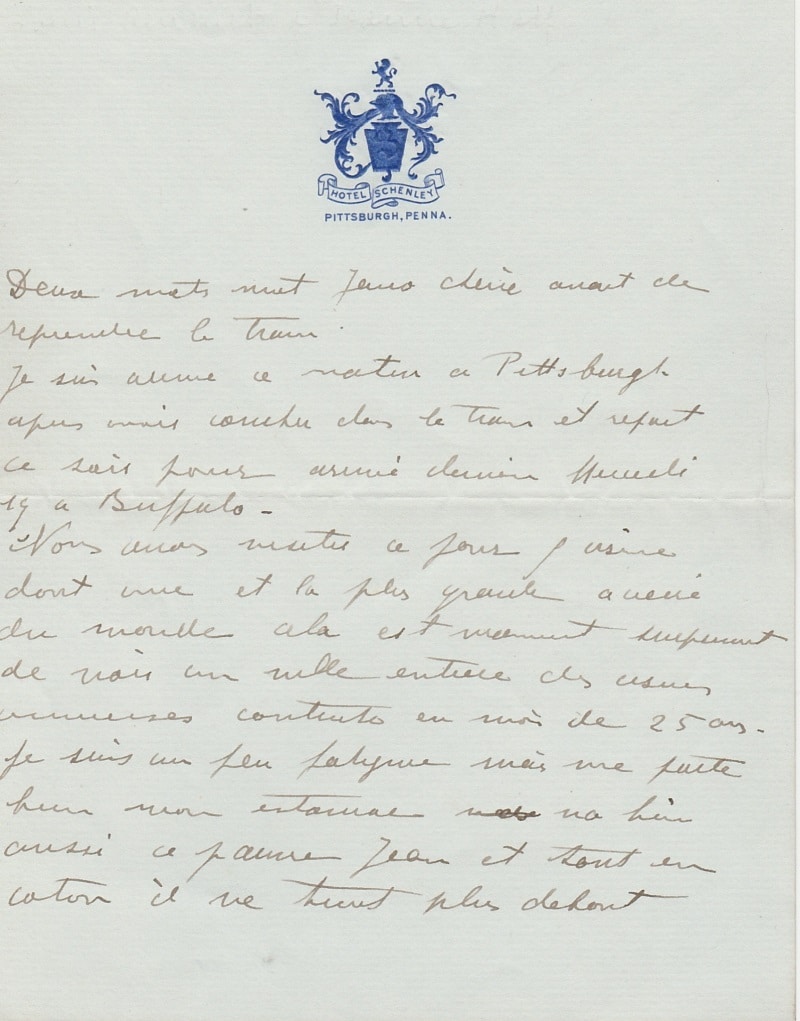 HOTEL SCHENLEY
PITTSBURGH, PENNA.
Deux mots cherie avant de
reprendre le train.
Je suis arrive ce matin a Pittsburgh
apres avoir couche dans le train et repart
ce soir pour arrivé demain
19 a Buffalo -
Nous avons visite ce jour usine
dont une et la plus grande acierie
du monde cela est vraiment surprenant
de voir un ville entiere des usines
immenses contruite en moi de 25 ans.
Je suis un peu fatigue mais me porte
bien mon estomac va bien
aussi ce pauvre Jean et tout en
coton il ne tient plus debout